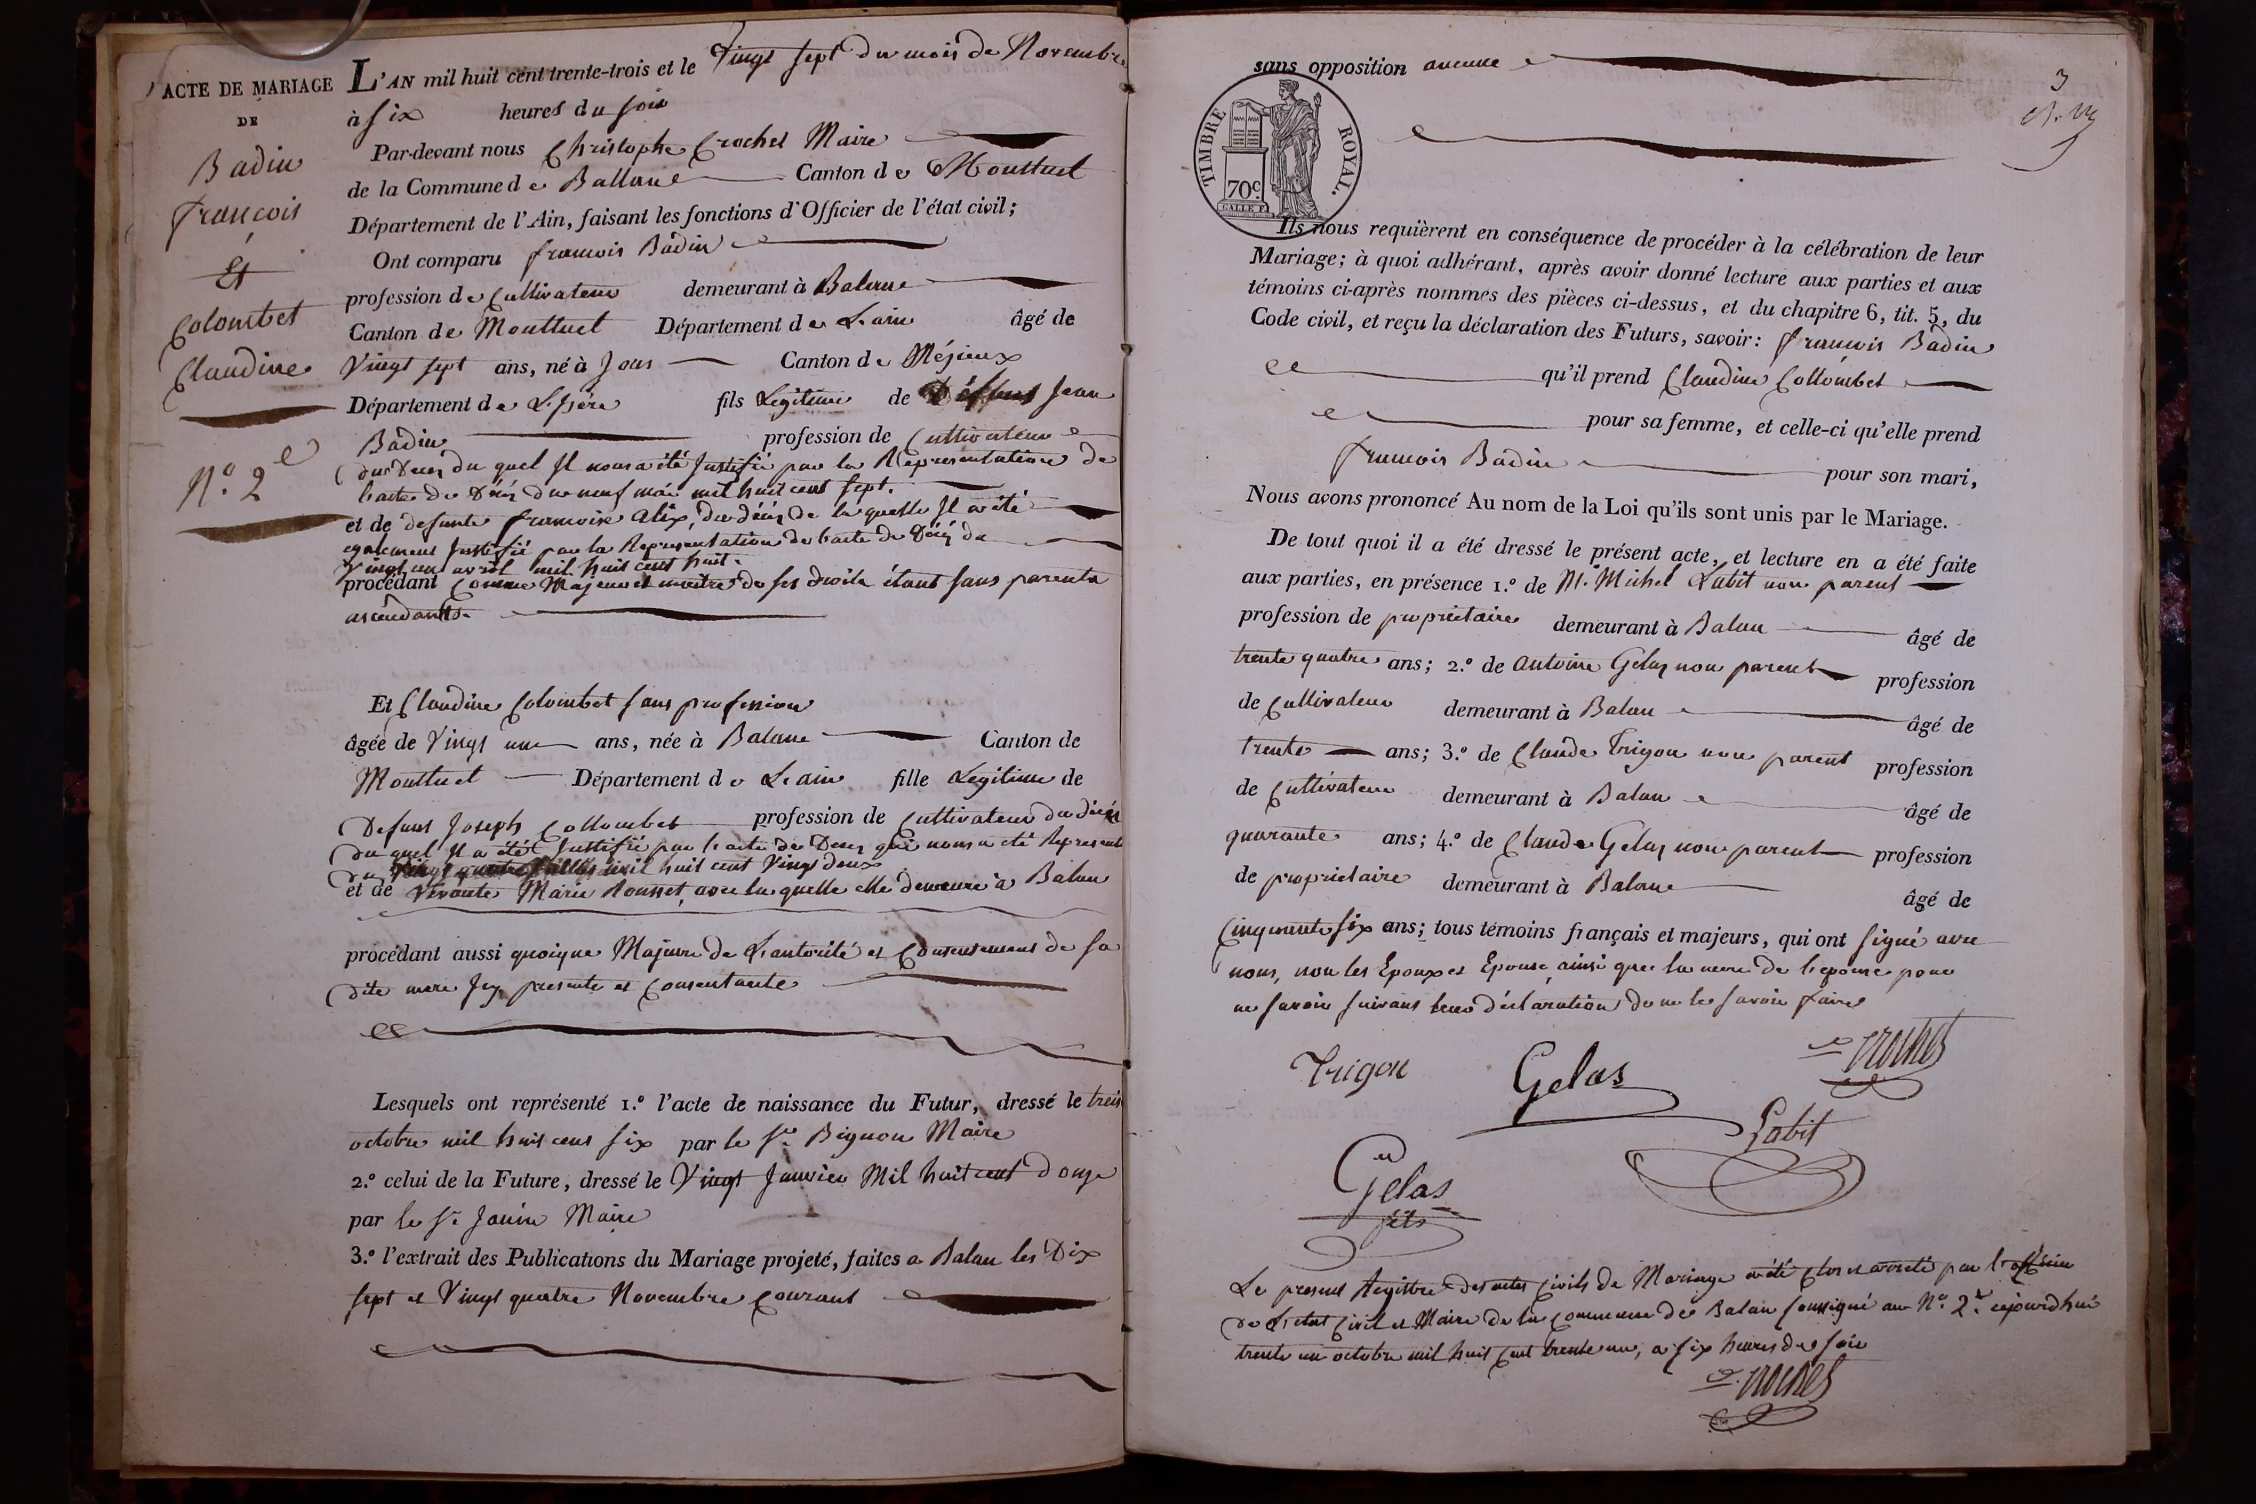 ACTE DE MARIAGE
DE
Badin
François
Et
Colombet
Claudine
N.º 2e
L'AN mil huit cent trente-trois et le Vingt sept du mois de Novembre
à six heures du soir
Par-devant nous Christophe Crochet Maire
de la Commune de Ballane Canton de Montluel
Département de l'Ain, faisant les fonctions d'Officier de l'état civil;
Ont comparu francois Badin
profession de Cultivateur demeurant à Balane
Canton de Montluel Département de L'ain âgé de
Vingt sept ans, né à Jons Canton de Méjieux
Département de L'isére fils Légitime de Défunt Jean
Badin profession de Cultivateur
du Deces du quel Il nous a été Justifié par la Representation de
l'acte de Décés du neuf mai mil huit cent sept.
et de defunte francoise alix, du décés de la quelle Il a été
egalement Justifié par la Representation de l'acte de Décés du
Vingt un avril mil huit cent huit.
procédant Comme Majeur et maitre de ses droits étant sans parents
ascendants.
Et Claudine Colombet sans profession
âgée de Vingt une ans, née à Balane Canton de
Montluel Département de L'ain fille Legitime de
Defunt Joseph Collombet profession de Cultivateur du décés
du quel Il a été Justifié par l'acte de Deces qui nous a été Represent
du Vingt quatre mil huit cent Vingt deux
et de vivante Marie Rousset, avec la quelle elle demeure à Balan
procédant aussi quoique Majeure de L'autorité et Consentement de sa
dite mere Icy presente et Consentante
Lesquels ont représenté 1.º l'acte de naissance du Futur, dressé le treis
octobre mil huit cent six par le Sr. Bignon Maire
2.º celui de la Future, dressé le Vingt Janvier Mil huit cent douze
par le Sr. Janin Maire
3.º l'extrait des Publications du Mariage projeté, faites a Balan les Dix
sept et Vingt quatre Novembre Courant
sans opposition aucune
3
TIMBRE ROYAL.
70c
Ils nous requièrent en conséquence de procéder à la célébration de leur
Mariage; à quoi adhérant, après avoir donné lecture aux parties et aux
témoins ci-après nommés des pièces ci-dessus, et du chapitre 6, tit. 5, du
Code civil, et reçu la déclaration des Futurs, savoir: francois Badin
qu'il prend Claudine Collombet
pour sa femme, et celle-ci qu'elle prend
francois Badin pour son mari,
Nous avons prononcé Au nom de la Loi qu'ils sont unis par le Mariage.
De tout quoi il a été dressé le présent acte, et lecture en a été faite
aux parties, en présence 1.º de M. Michel Labit non parent
profession de propriétaire demeurant à Balan âgé de
trente quatre ans; 2.º de antoine Gelas non parent profession
de Cultivateur demeurant à Balan âgé de
trente ans; 3.º de Claude Trigon non parent profession
de Cultivateur demeurant à Balan âgé de
quarante ans; 4.º de Claude Gelas non parent profession
de proprietaire demeurant à Balane âgé de
Cinquante six ans; tous témoins français et majeurs, qui ont signé avec
nous, non les Epoux et Epouse, ainsi que la mere de l'epouse pour
ne savoir suivant leur déclaration de ne le savoir faire
Trigon Gelas Crochet
Labit
Gelas
fils
Le present Registre des actes Civils de Mariage a été clos et arreté par l'officier
de L'etat Civil et Maire de la Commune de Balan soussigné au N.º 2. aujourdhui
trente un octobre mil huit Cent trente un, a six heures du soir
Crochet